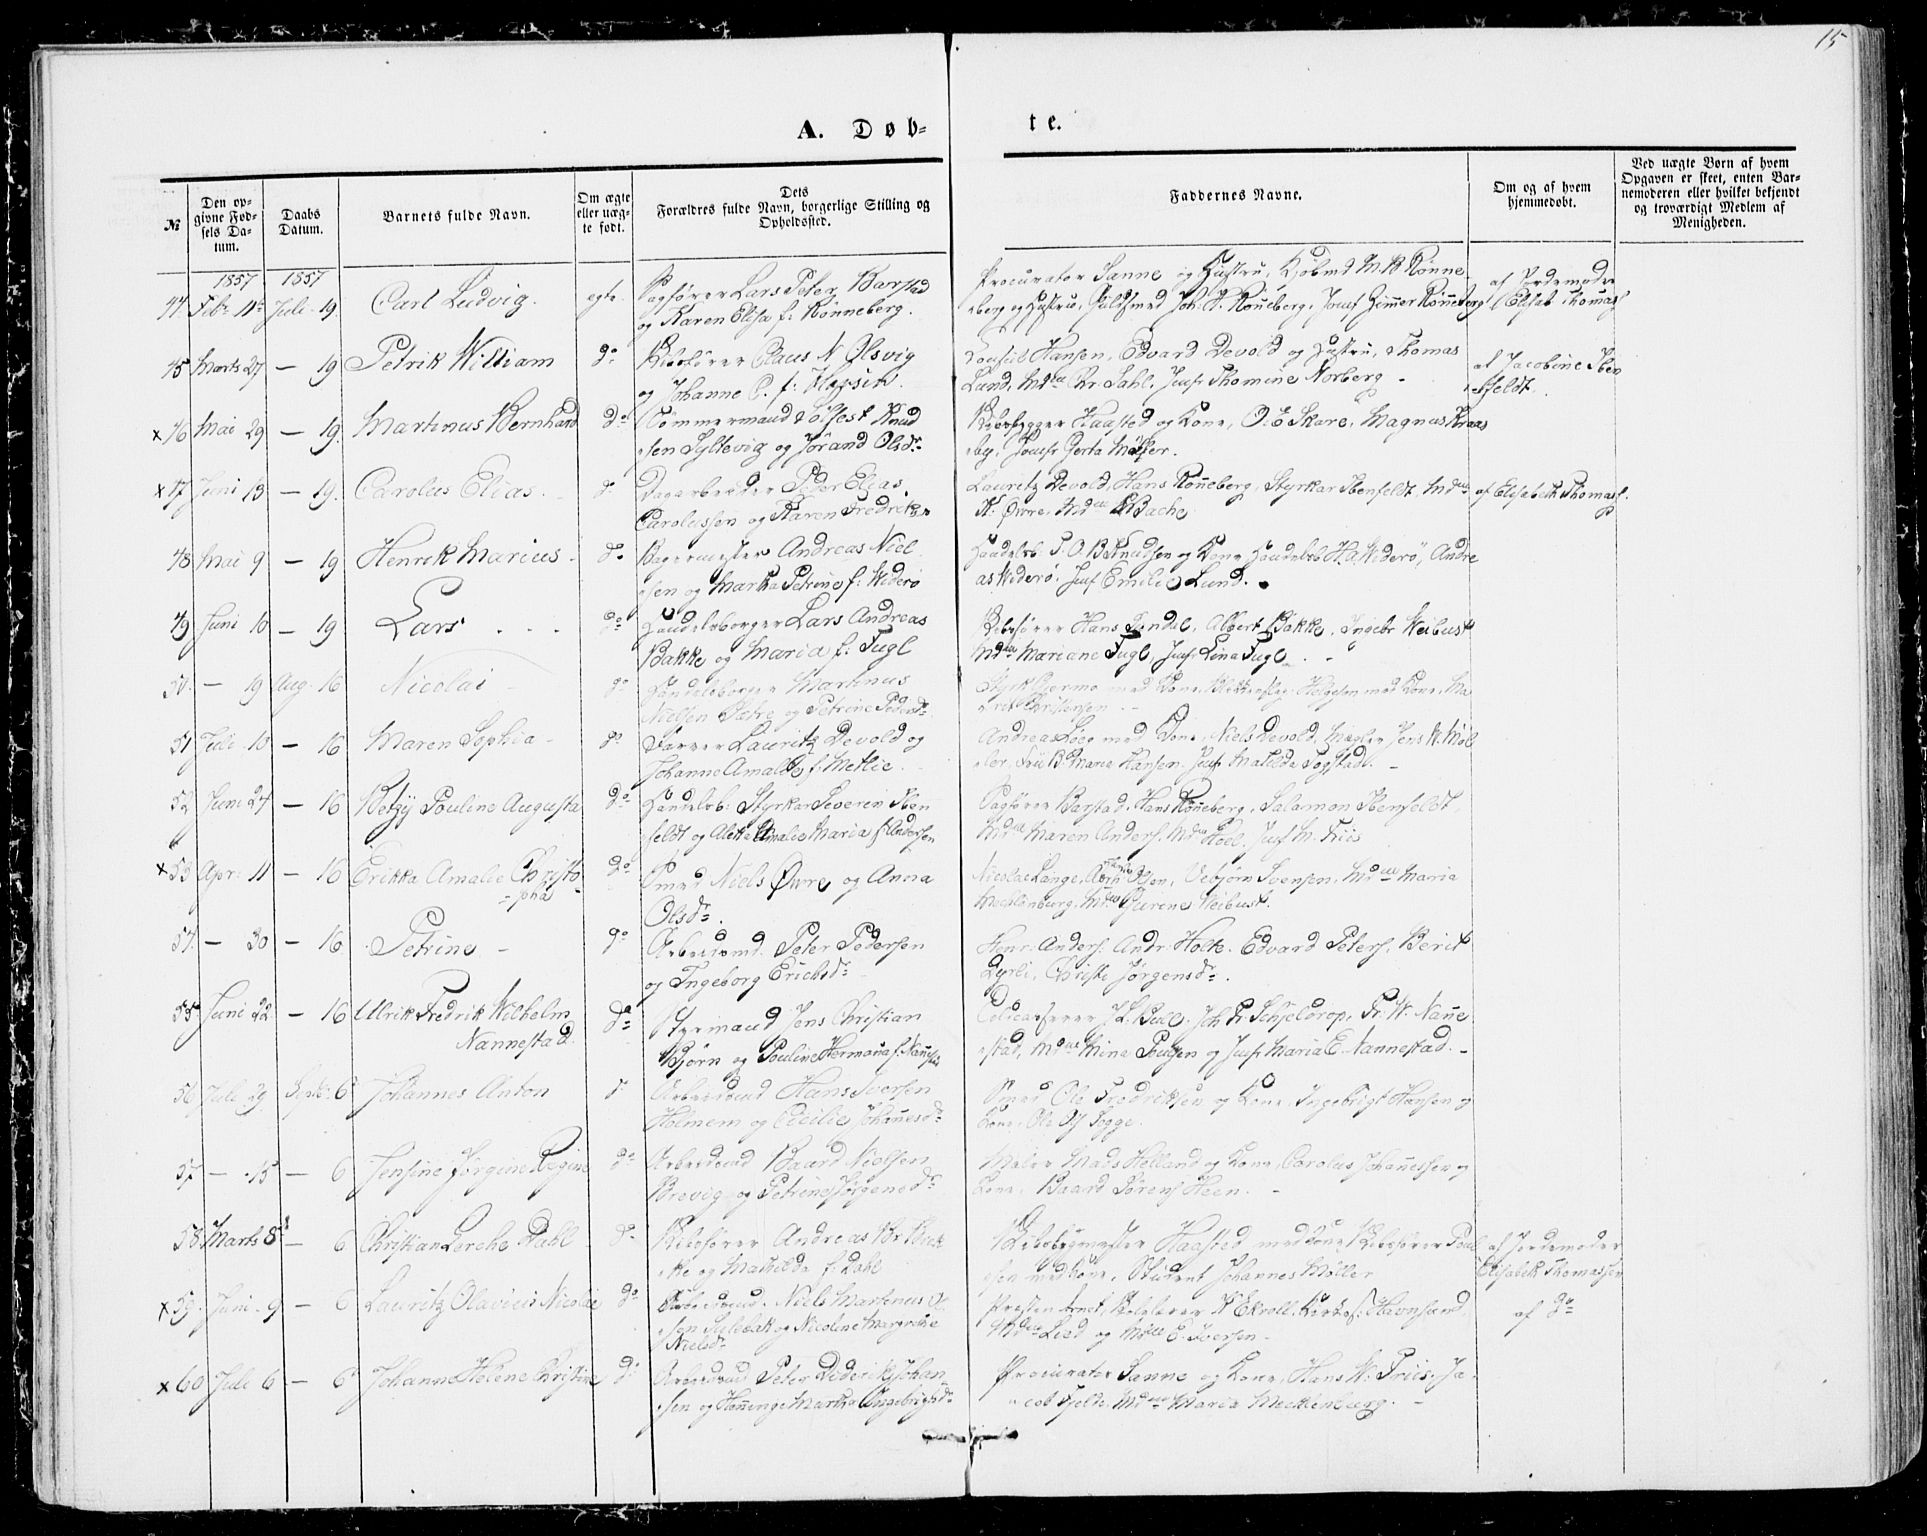 15
A. Døb-
te.
№
Den op-
givne Fød-
sels Da-
tum.
Daabs
Datum.
Barnets fulde Navn.
Om ægte
eller uæg-
te født.
Dets
Forældres fulde Navn, borgerlige Stilling og
Opholdssted.
Faddernes Navne.
Om og af hvem
hjemmedøbt.
Ved uægte Børn af hvem
Opgaven er skeet, enten Bar-
nemoderen eller hvilket bekjendt
og troværdigt Medlem af
Menigheden.
1857 1857
44 Feb. 11 Juli 19 Carl Ludvig. egte. Sagfører Lars Peter Barstad
og Karen Elisa f: Rønneberg.
Procurator Sanne og Hustru, Kjøbmd M. B. Rønne-
berg og Hustru, Guldsmed Joh. H. Rønneberg, Josef Gimer Rønneberg
af Jordemoder
Elisab Thomass
45 Marts 27 — 19 Petrik William do Skibsfører Claus N Olsvig
og Johanne C. f:
Consul Hansen, Edvard Devold og Hustru, Thomas
Lund, Mdm Chr. Dahl, Jomf Thomine Norberg -
af Jacobine Iben
feldt.
x 46 Mai 29 — 19. Martinus Bernhard do Tømmermand Solfest Knud
sen Syltevig og Jørand Olsdr
Skibsbygger Haasted og Kone, O. E Skare, Magnus Kraas
by, Jomfr Gerta Møller.
x 47 Juni 13 — 19. Carolus Elias. do Dagarbeider Peder Elias
Carolussen og Karen Fredriks
Lauritz Devold, Hans Rønneberg, Styrkar Ibenfeldt, Mdm
K. Øvre, Mdm Bache
af Elisabeth Thomass.
48 Mai 9 — 19 Henrik Marius. do Bagermester Andreas Niel
sen og Martha Petrine f: Widerø
Handelsb: P. O. B Knudsen og Kone, Handelsb H. O. Widerø, Andre
as Widerø, Jmf Emilie Lund.
49 Juni 10 — 19 Lars do Handelsborger Lars Andreas
Bakke og Maria f: Fugl
Skibsfører Hans Albert Bakke, Ingebr Weibust
Mdm Mariane Fugl, Jmfr Lina Fugl.
50. — 19 Aug. 16 Nicolai do Handelsborger Martinus
Nielsen Sætre og Petrine Pedersdr
med Kone, Helgesen med Kone, Ma
Christensen
51 Juli 10 — 16 Maren Sophia do Farver Lauritz Devold og
Johanne Amalie f: Methie.
Andreas med Kone, Niels Devold, Mægler Jens W. Møl
ler, Fru B. Marie Hansen, Jmfr Matilda Togstad.
52 Juni 24 — 16 Betzy Pouline Augusta do Handelsb: Styrkar Severin Iben
feldt og Aletta Amalie Maria f. Andersen
Sagfører Barstad, Hans Rønneberg, Salamon Ibenfeldt,
Mdm Maren Anders. Mdm Hoel, Jmf M. Friis
x 53 Apr: 11 — 16 Erikka Amalie Christo-
-pha do Smed Niels Øvre og Anna
Olsdr.
Nicolai Lange, Olsen, Vebjørn Svensen, Mdm Maria
Mecklenburg, Mdm Gurene Weibust.
54. — 30 — 16 Petrine - do Arbeidsmd. Peter Pedersen
og Ingeborg Erichsdr
Henr. Anders. Andr. Holte. Edvard Peters, Berit
Dyrli, Christe Jørgensdr.
55 Juni 22 — 16 Ulrik Fredrik Wilhelm
Nannestad. do Styrmand Jens Christian
Bjørn og Pouline Hermana f. Nannestad
J. L. Bull, Joh. Fr Schjeldrop, Fr. W. Nanne
stad, Mdm Mina Poulsen og Jmfr Maria E. Nannestad. -
56 Juli 29 Septb: 6 Johannes Anton do Arbeidsmd Hans Iversen
Holmem og Cicilie Johannesdr
Smed Ole Fredriksen og Kone, Ingebrigt Hansen og
Kone, Ole Ols Togge.
57 — 15 — 6 Jensine Jørgine Regine do Arbeidsmd Baard Nielsen
Brevig og Petrine Jørgensdr
Maler Mads Helland og Kone, Carolus Johannessen og
Kone, Baard Sørens Heen. -
58 Marts 8 — 6 Christian Lerche Dahl do Skibsfører Andreas Br. Brek
ke og Mathilda f. Dahl
Skibsbygmester Haasted med Kone, Skibsfører Poul
sen med Kone, Student Johannes Møller
af Jordemoder
Elisabeth Thomassen
x 59. Juni 9 — 6 Lauritz Olavius Nicolai do Arbeidsmd. Niels Martinus O
sen og Nicoline Margrethe
Nielsdr
Presten K Ekroll, Havnsund,
Mdm Lied og Mdlle E. Iversen -
af do
x 60 Juli 6 — 6 Johanne Helene Christine do Arbeidsmd Peter Diderik Johan
sen og Henninge Martha Ingebrigtsdr
Procurator Sanne og Kone, Hans W. Friis, Ja
cob Fjelde, Mdm Maria Mecklenburg. -